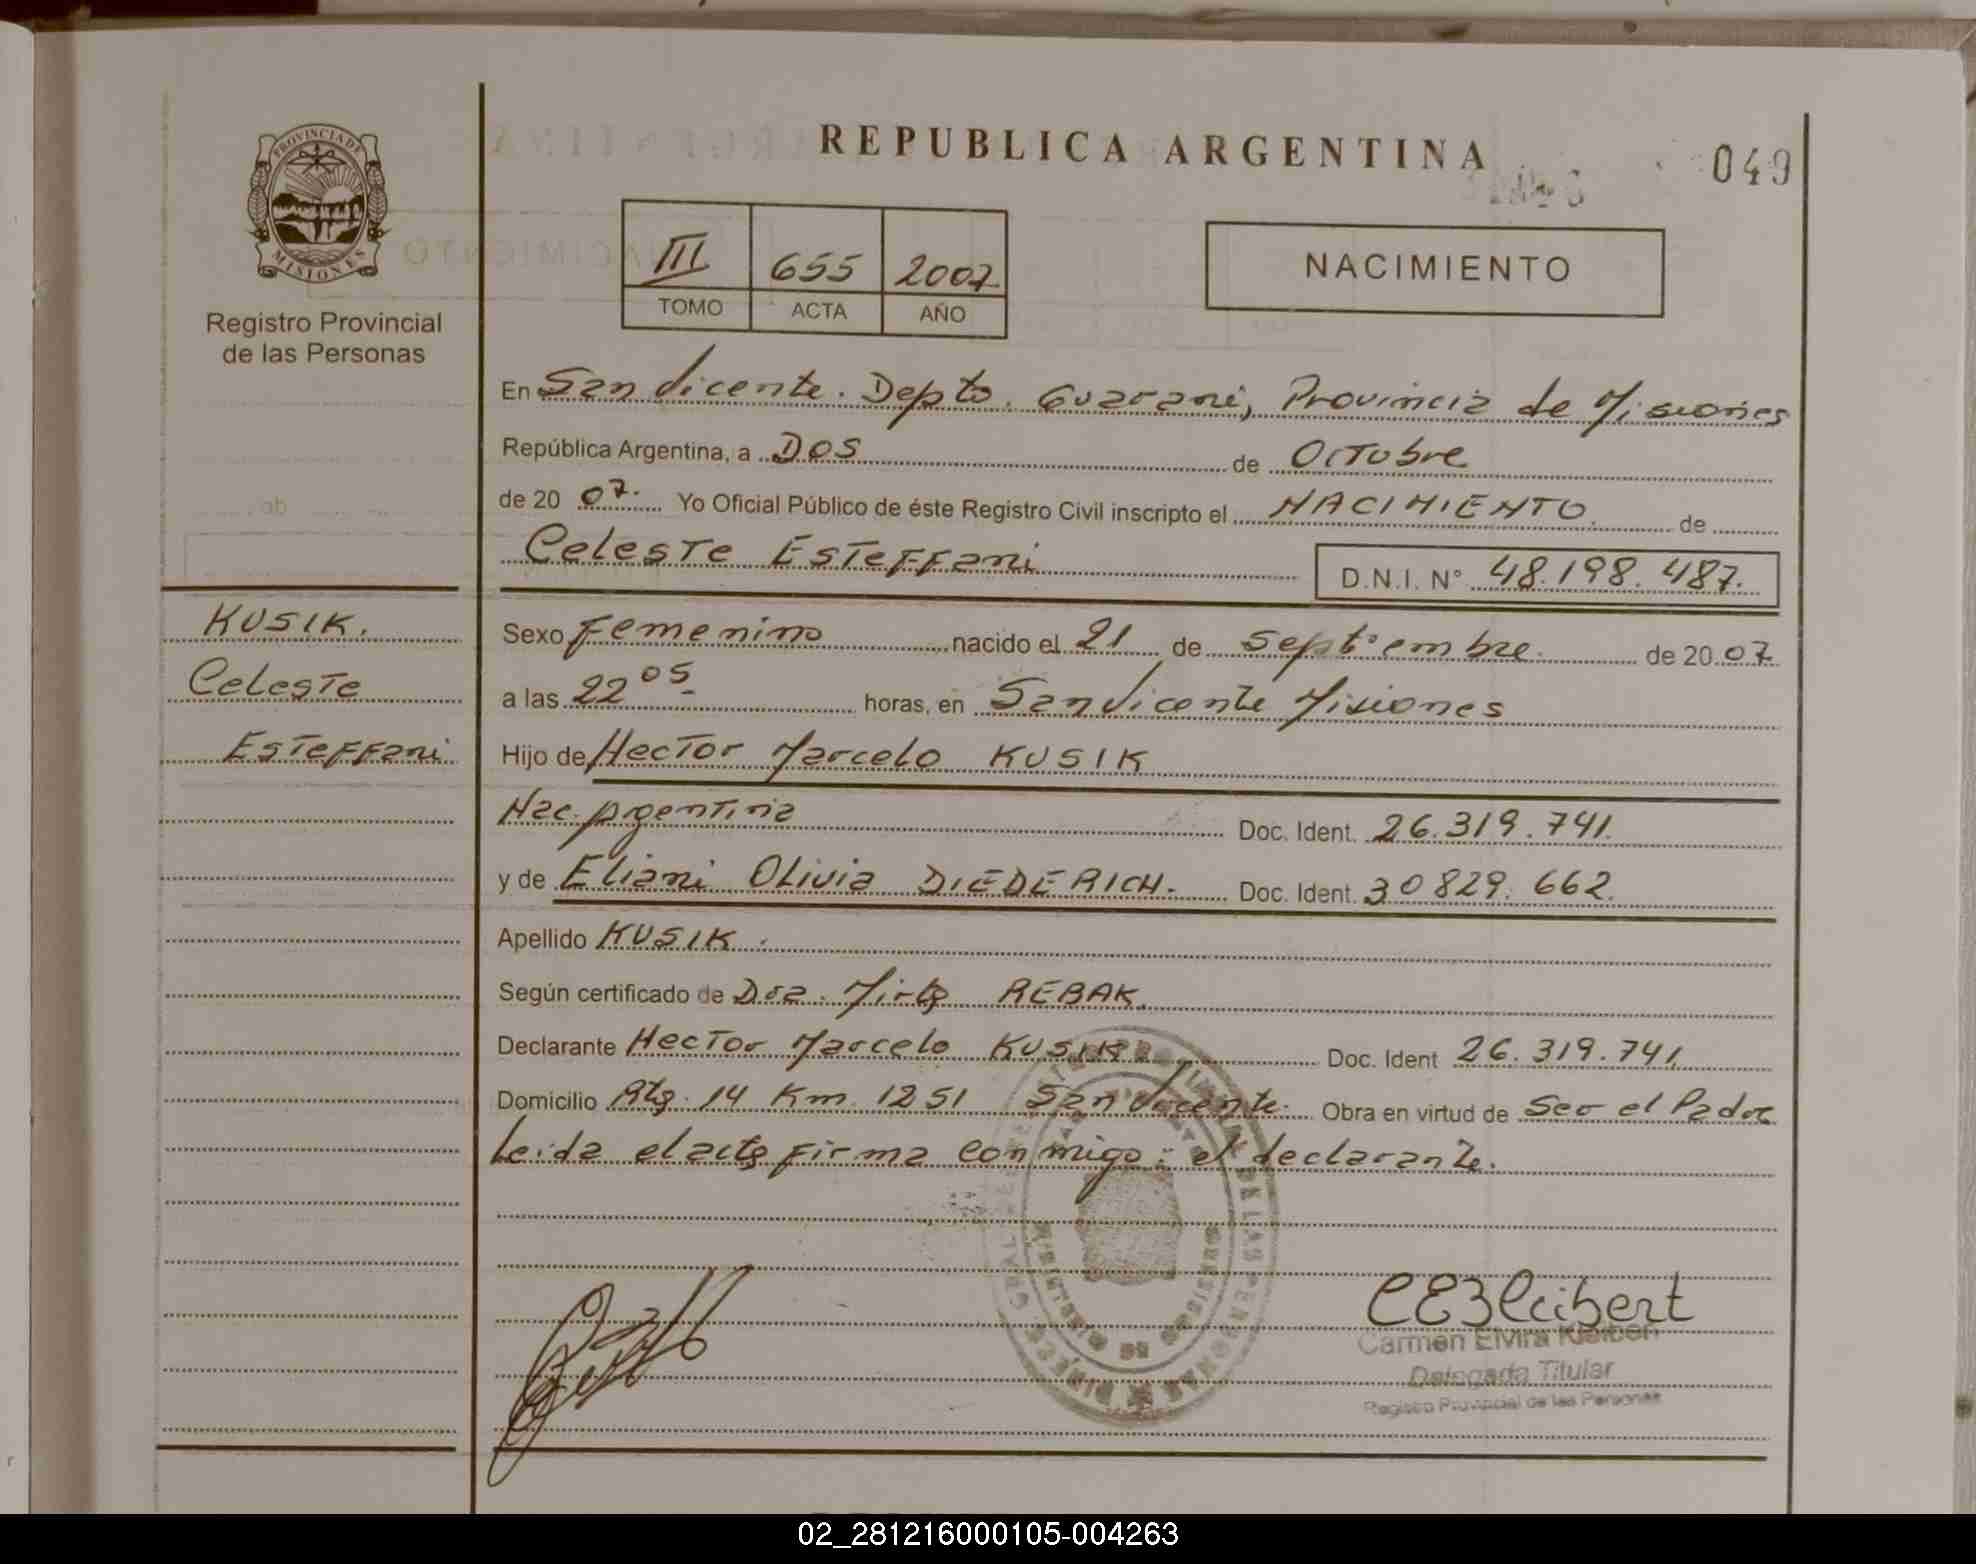 REPUBLICA ARGENTINA
049
PROVINCIA DE
MISIONES
Registro Provincial
de las Personas
III 655 2007
TOMO ACTA AÑO
NACIMIENTO
En San Vicente. Depto. Guarani, Provincia de Misiones
República Argentina, a DOS de Octubre
de 20 07. Yo Oficial Público de éste Registro Civil inscripto el NACIMIENTO de
Celeste Esteffani D.N.I. N° 48.198.487.
KUSIK.
Celeste
Esteffani
Sexo Femenino nacido el 21 de Septiembre de 20 07
a las 22 05 horas, en San Vicente Misiones
Hijo de Hector Marcelo KUSIK
Nac. Argentina Doc. Ident. 26.319.741.
y de Eliani Olivia DIEDERICH. Doc. Ident. 30829.662.
Apellido KUSIK.
Según certificado de Dra. Mirta REBAK.
Declarante Hector Marcelo KUSIK Doc. Ident 26.319.741
Domicilio Rta. 14 Km. 1251 San Vicente. Obra en virtud de Ser el Padre
Leida el acta firma conmigo: el declarante.
CEKleibert
Carmen Elvira Kleibert
Delegada Titular
Registro Provincial de las Personas
02_281216000105-004263